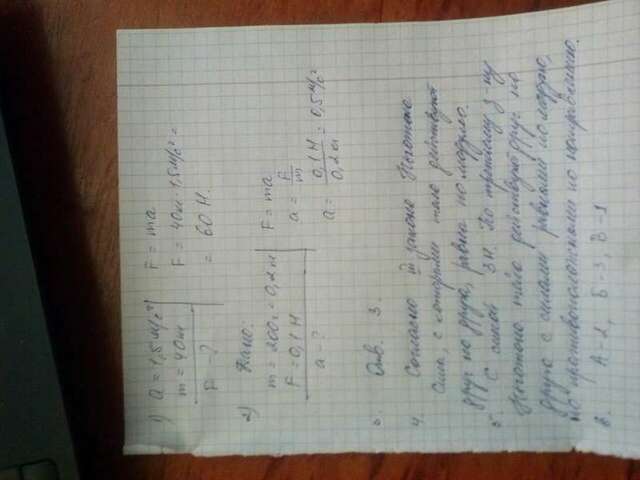 1) a = 1,5 м/с² F = ma
m = 40кг F = 40кг · 1,5 м/с² =
F - ? = 60 Н.
2) Дано:
m = 200г = 0,2кг F = ma
F = 0,1 Н a = F/m
a - ? a = 0,1 Н / 0,2кг = 0,5 м/с²
3. Отв. 3.
4. Согласно III закону Ньютона
сила, с которыми тела действуют
друг на друга, равны по модулю.
5 с силой 3Н. По третьему з-ну
Ньютона тела действуют друг на
друга с силами равными по модулю,
но противоположными по направлению.
6. А-2, Б-3, В-1